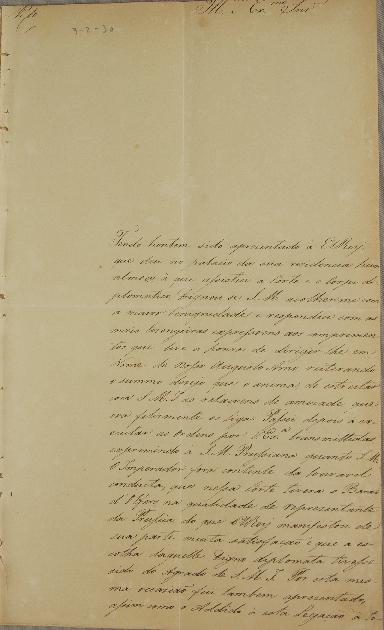 Ill.mo Ex.mo Snr.
7-2-30
Tendo hontem sido apresentado á El Rey
que deu no palacio da sua residencia hum
almoço á que assistiu a Corte e o Corpo di
plomatico Dignou se S. M. acolher me com
a maior benignidade e respondeu com as
mais lisongeiras expressoens aos comprimen
tos que tive a honra de dirigir lhe em
Nome de Nosso Augusto Amo reiterando
o summo desejo que o anima de estreitar
com S. M. I. as relacoens de amizade que
os ligão Passei depois a exe
cutar as Ordens por V. Ex.a transmittidas
exprimindo à S. M. Prussiana quanto S. M.
O Imperador fora contente da louvavel
conducta, que nessa Corte tivera o Barão
na qualidade de representante
da Prussia do que El Rey manifestou de
sua parte muita satisfação e que a es
colha daquelle digno diplomata tivesse
sido do Agrado de S. M. I. Por esta mes
ma occasião fui tambem apresentado,
assim como o Addido à esta Legação à to